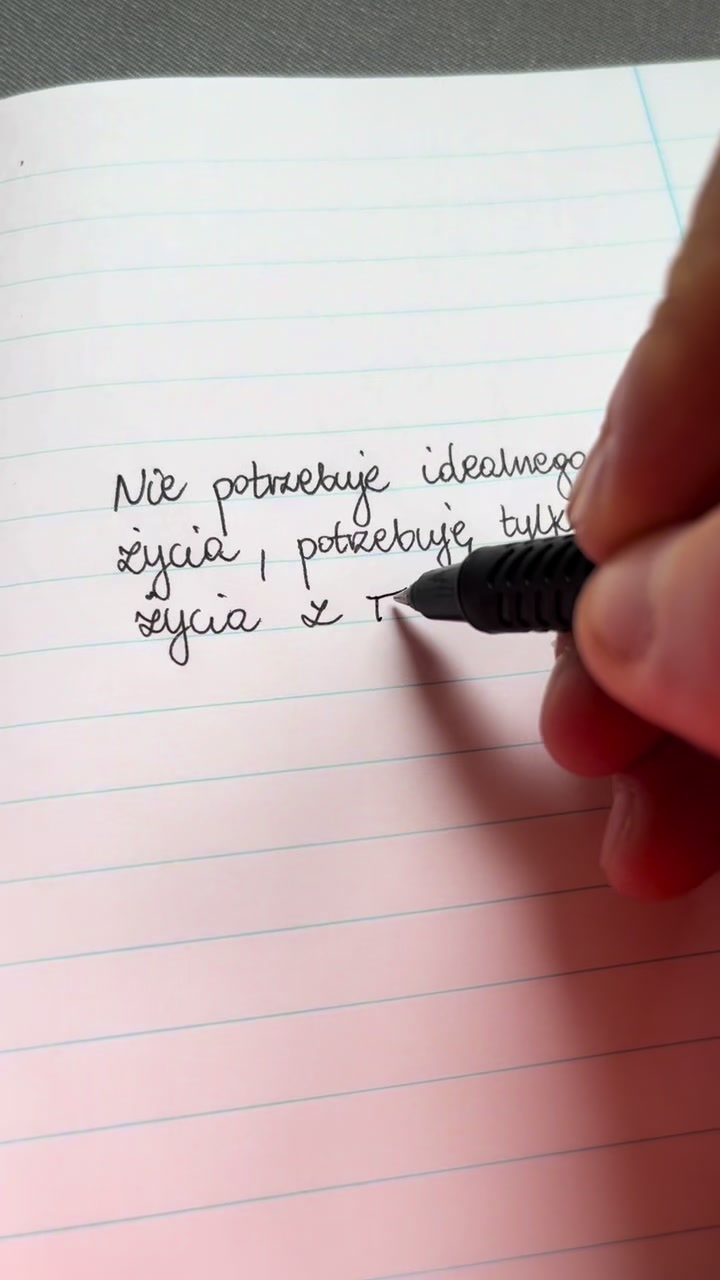 Nie potrzebuje idealnego
życia, potrzebuję tylk
życia z T